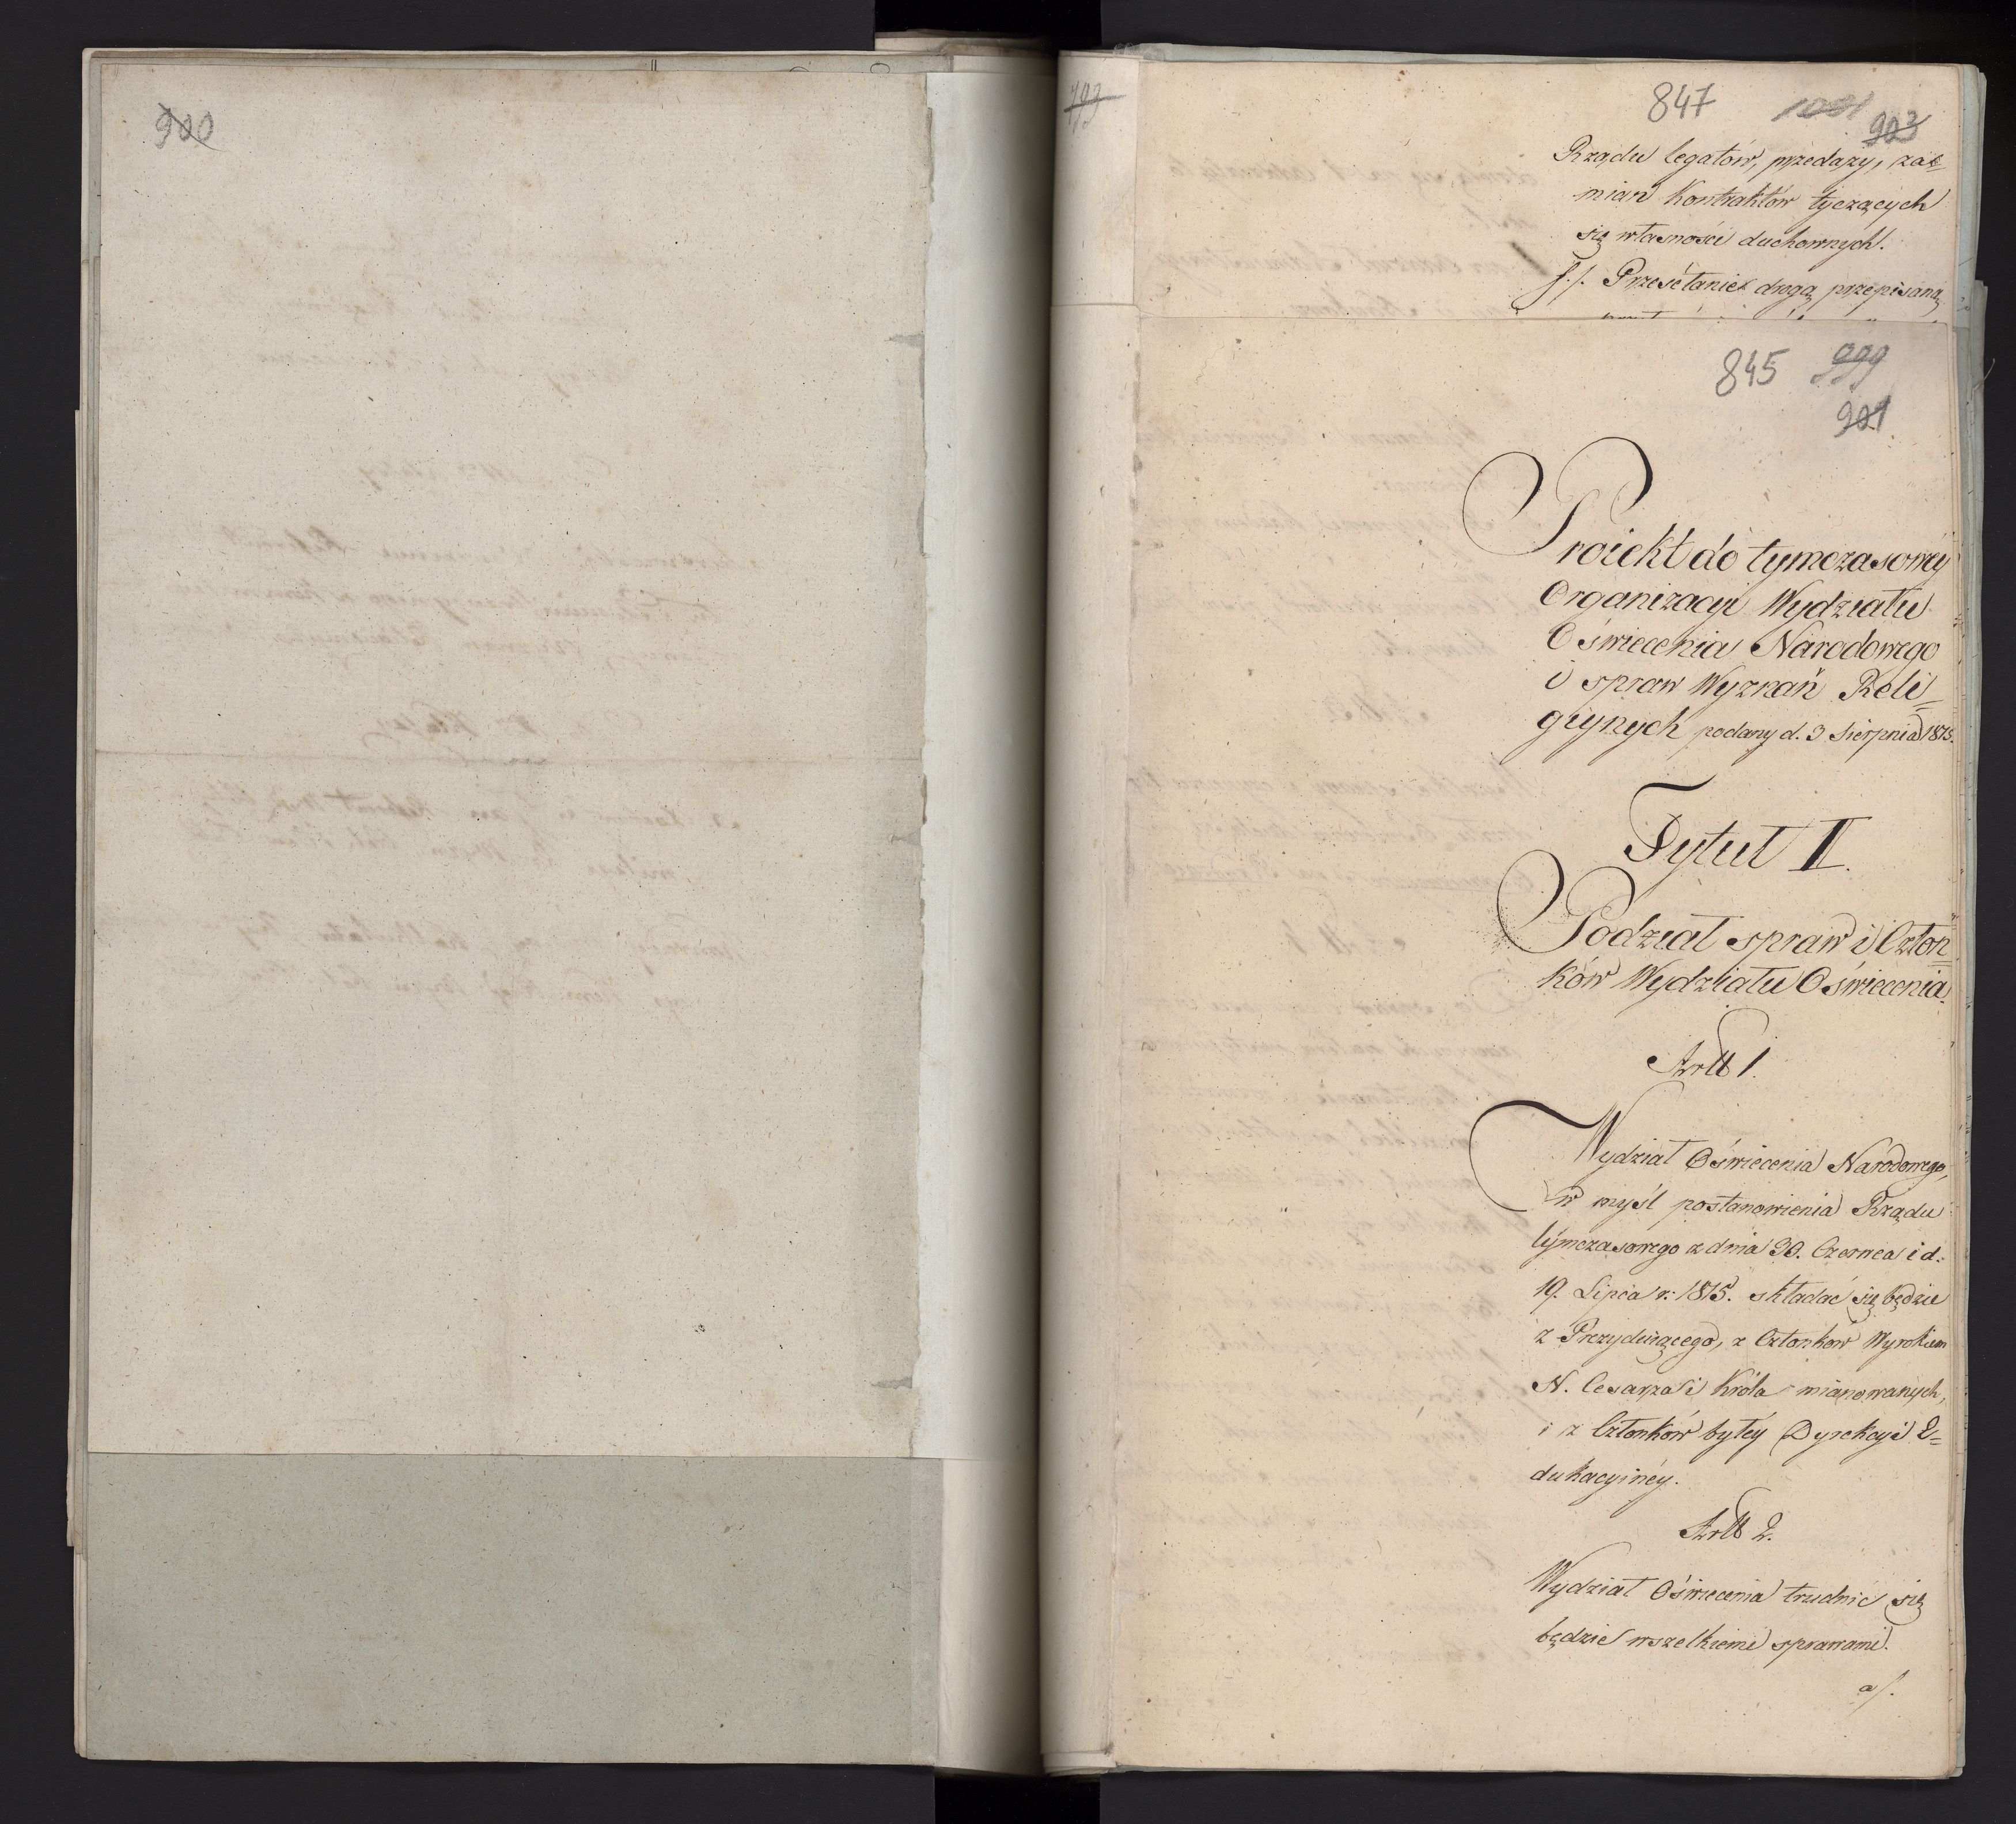 900
793
847 1001
903
Rządu legatów, przedaży, za=
mian Kontraktów tyczących
się własności duchownych.
f./. Przesełanie drogą przepisaną
845 999
901
Proiekt do tymczasowey
Organizacyi Wydziału
Oświecenia Narodowego
i spraw Wyznań Reli=
giynych podany d. 3 Sierpnia 1815.
Tytuł II.
Podział spraw i Człon=
ków Wydziału Oświecenia.
Artt 1.
Wydział Oświecenia Narodowego,
w myśl postanowienia Rządu
tymczasowego z dnia 30. Czerwca i d.
19. Lipca r. 1815. składać się będzie
z Prezyduiącego, z Członków Wyrokiem
N. Cesarza i Króla mianowanych,
i z Członków byłéy Dyrekcyi E=
dukacyinéy.
Artt 2.
Wydział Oświecenia trudnić się
będzie wszelkiemi sprawami.
a/.